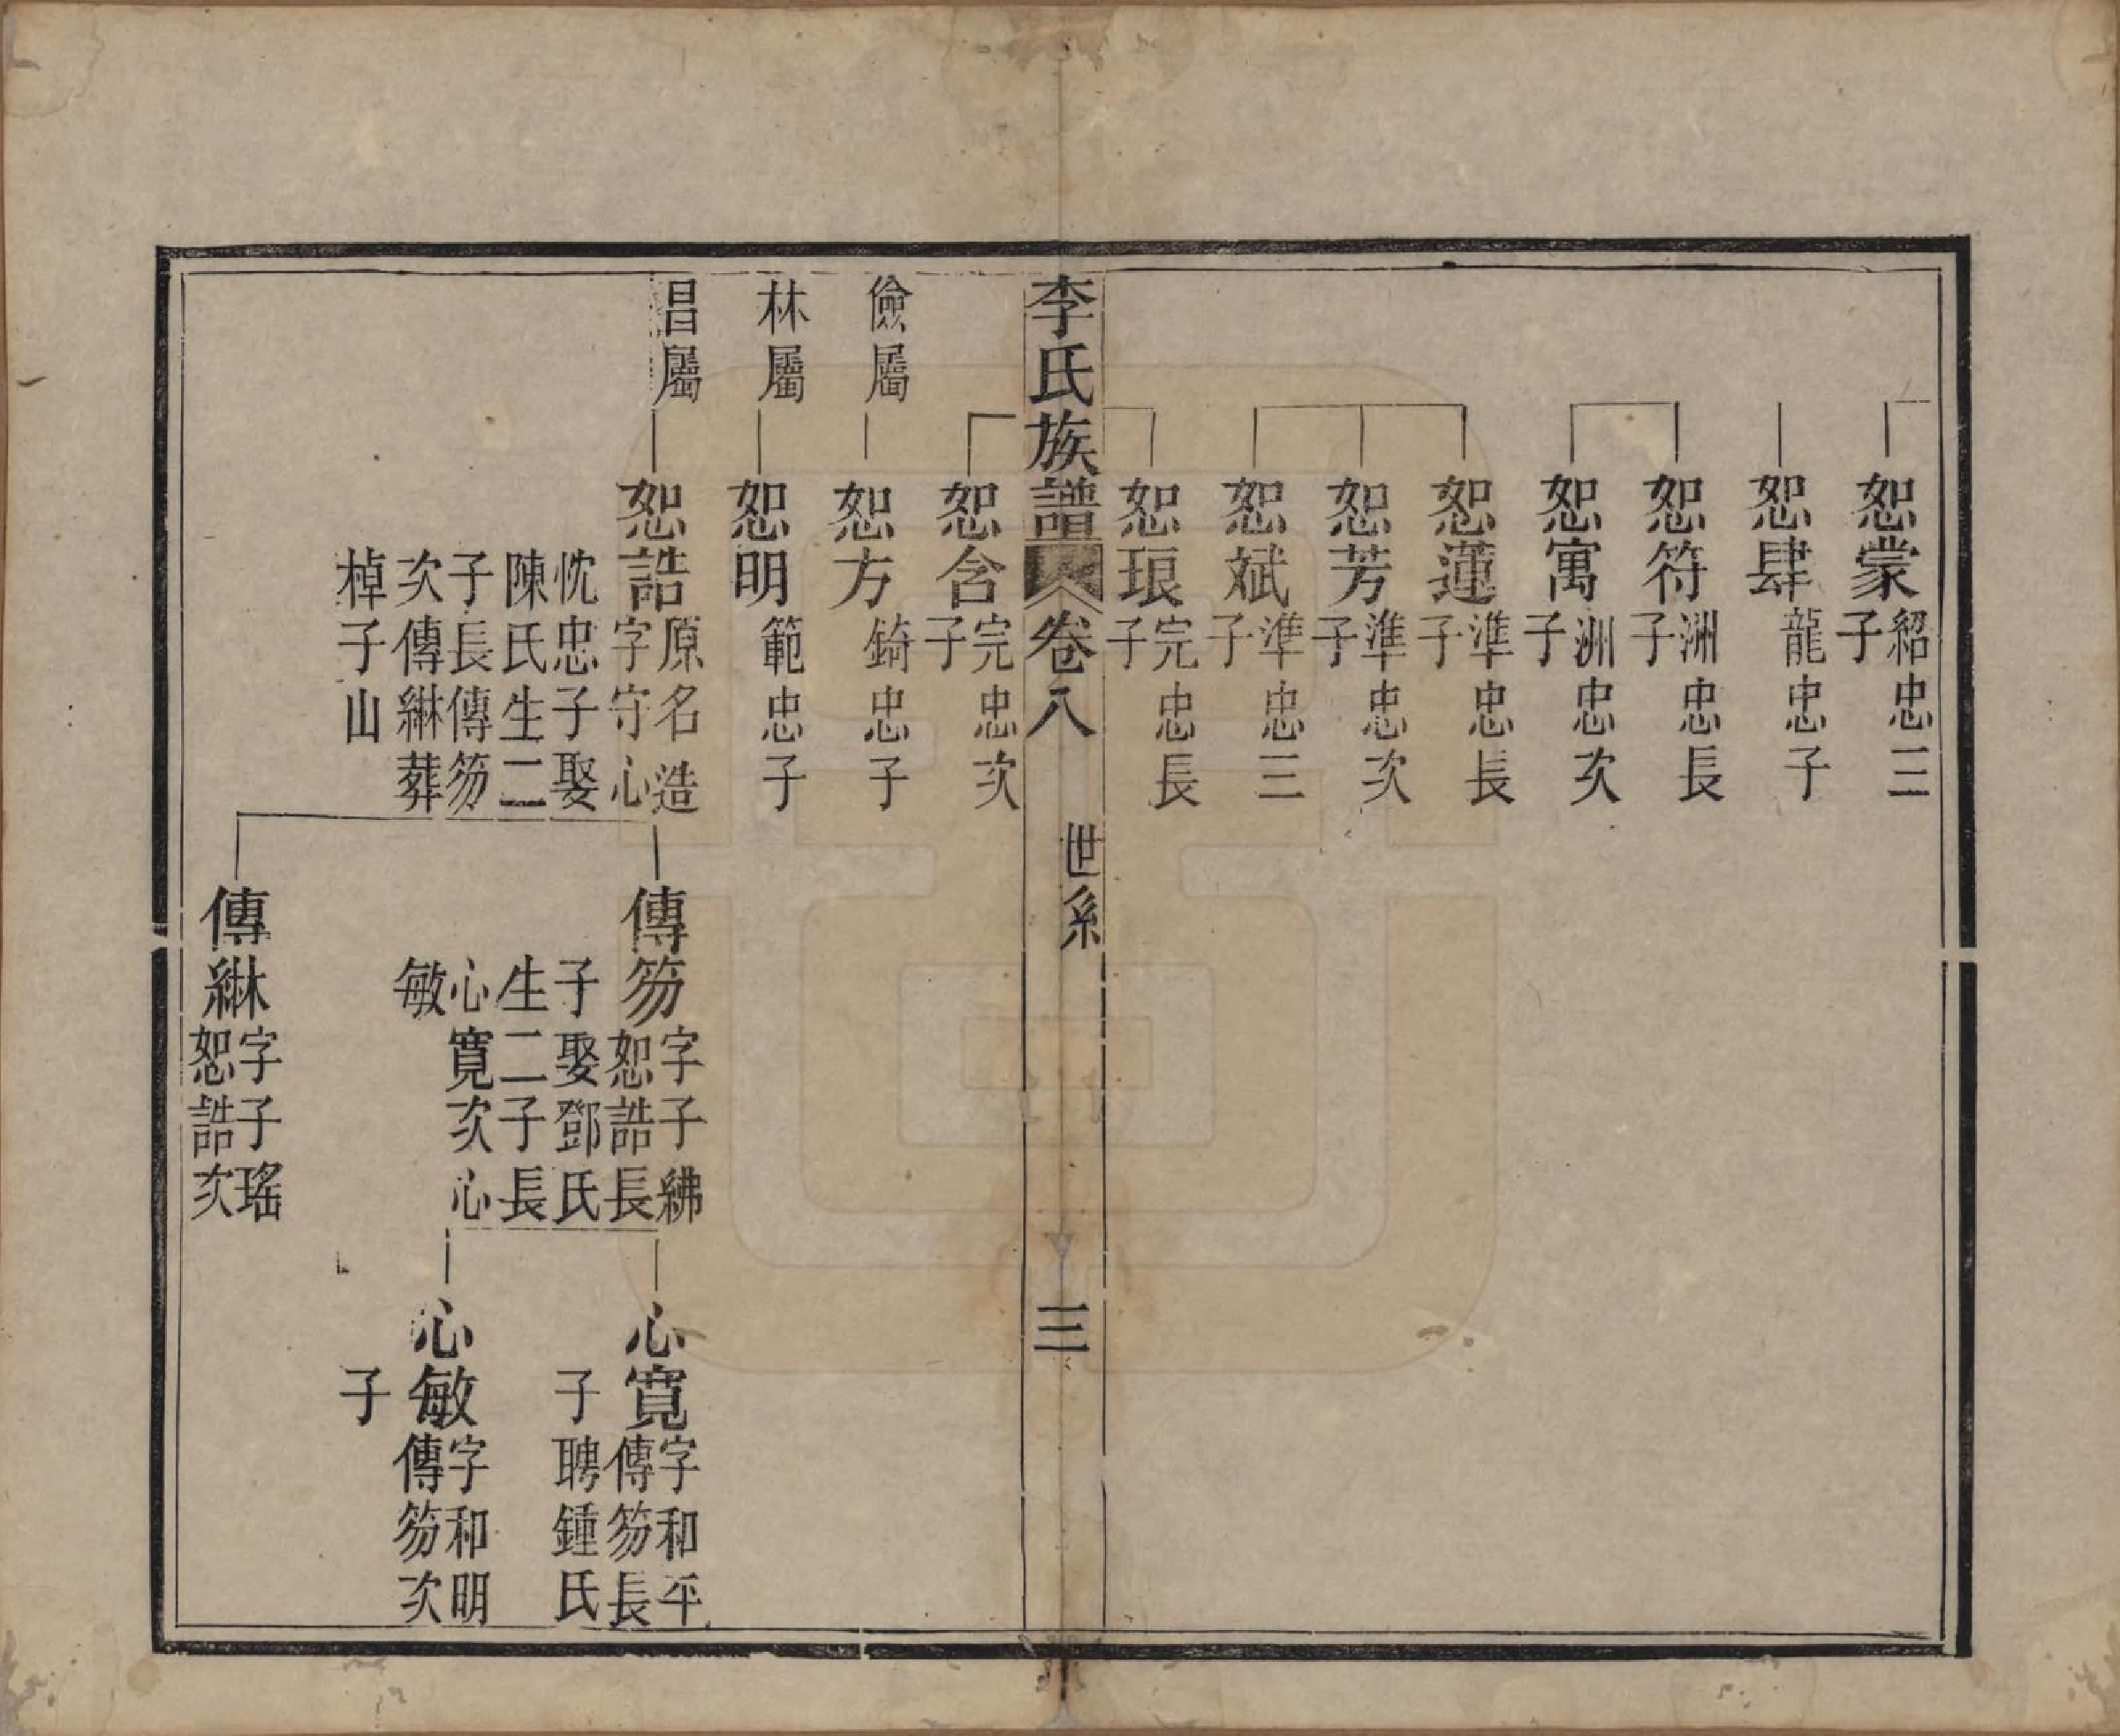 恕蒙
紹忠三
子
恕肆
龍忠子
恕符
洲忠長
子
恕寓
洲忠次
子
恕蓮
準忠長
子
恕芳
準忠次
子
恕斌
準忠三
子
恕琅
完忠長
子
李氏族譜 卷八 世系 三
恕含
完忠次
子
儉屬
恕方
錡忠子
林屬
恕明
範忠子
昌屬
恕誥
原名造
字守心
忱忠子娶
陳氏生二
子長傳笏
次傳綝葬
棹子山
傳笏
字子紼
恕誥長
子娶鄧氏
生二子長
心寬次心
敏
心寬
字和平
傳笏長
子聘鍾氏
心敏
字和明
傳笏次
子
傳綝
字子瑤
恕誥次